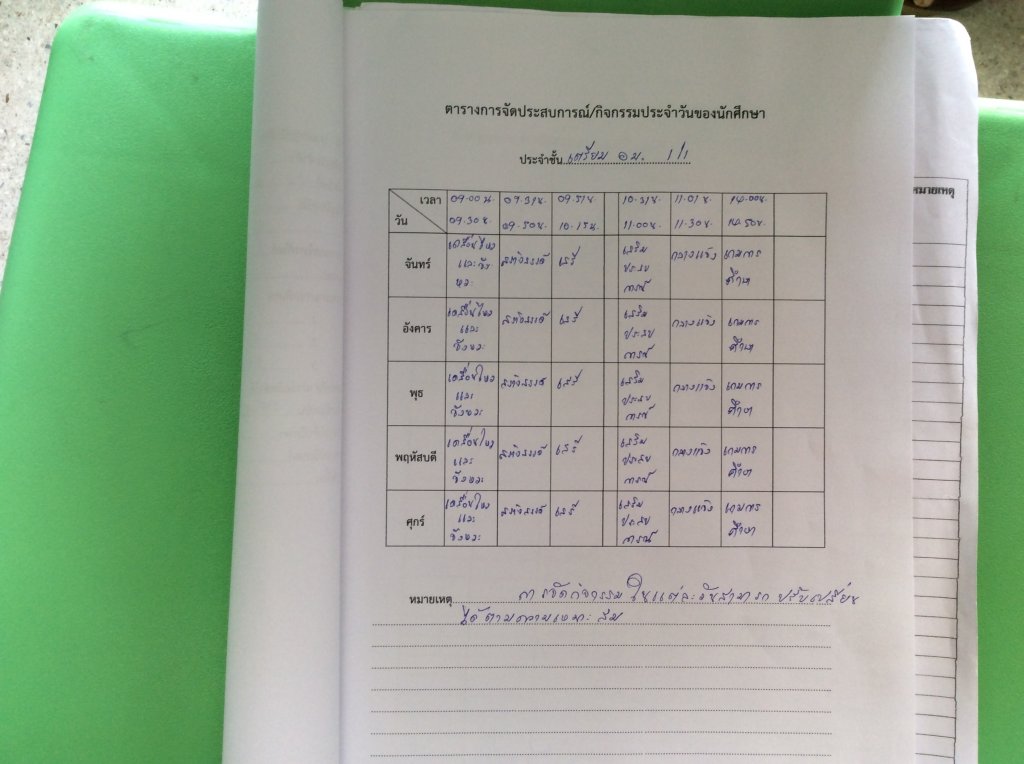 ตารางการจัดประสบการณ์/กิจกรรมประจำวันของนักศึกษา
ประจำชั้น เตรียม อม. 1/1
หมายเหตุ
เวลา 09.00 น. 09.31น. 09.51น. 10.31น. 11.01 น. 14.00น.
วัน 09.30น. 09.50น. 10.15น. 11.00น. 11.30น. 14.50น.
จันทร์ เคลื่อนไหว และจัง หวะ สร้างสรรค์ เสรี เสริม ประสบ การณ์ กลางแจ้ง เกมการ ศึกษา
อังคาร เคลื่อนไหว และ จังหวะ สร้างสรรค์ เสรี เสริม ประสบ การณ์ กลางแจ้ง เกมการ ศึกษา
พุธ เคลื่อนไหว และ จังหวะ สร้างสรรค์ เสรี เสริม ประสบ การณ์ กลางแจ้ง เกมการ ศึกษา
พฤหัสบดี เคลื่อนไหว และ จังหวะ สร้างสรรค์ เสรี เสริม ประสบ การณ์ กลางแจ้ง เกมการ ศึกษา
ศุกร์ เคลื่อนไหว และ จังหวะ สร้างสรรค์ เสรี เสริม ประสบ การณ์ กลางแจ้ง เกมการ ศึกษา
หมายเหตุ การจัดกิจกรรมในแต่ละวันสามารถปรับเปลี่ยน
ได้ตามความเหมาะสม